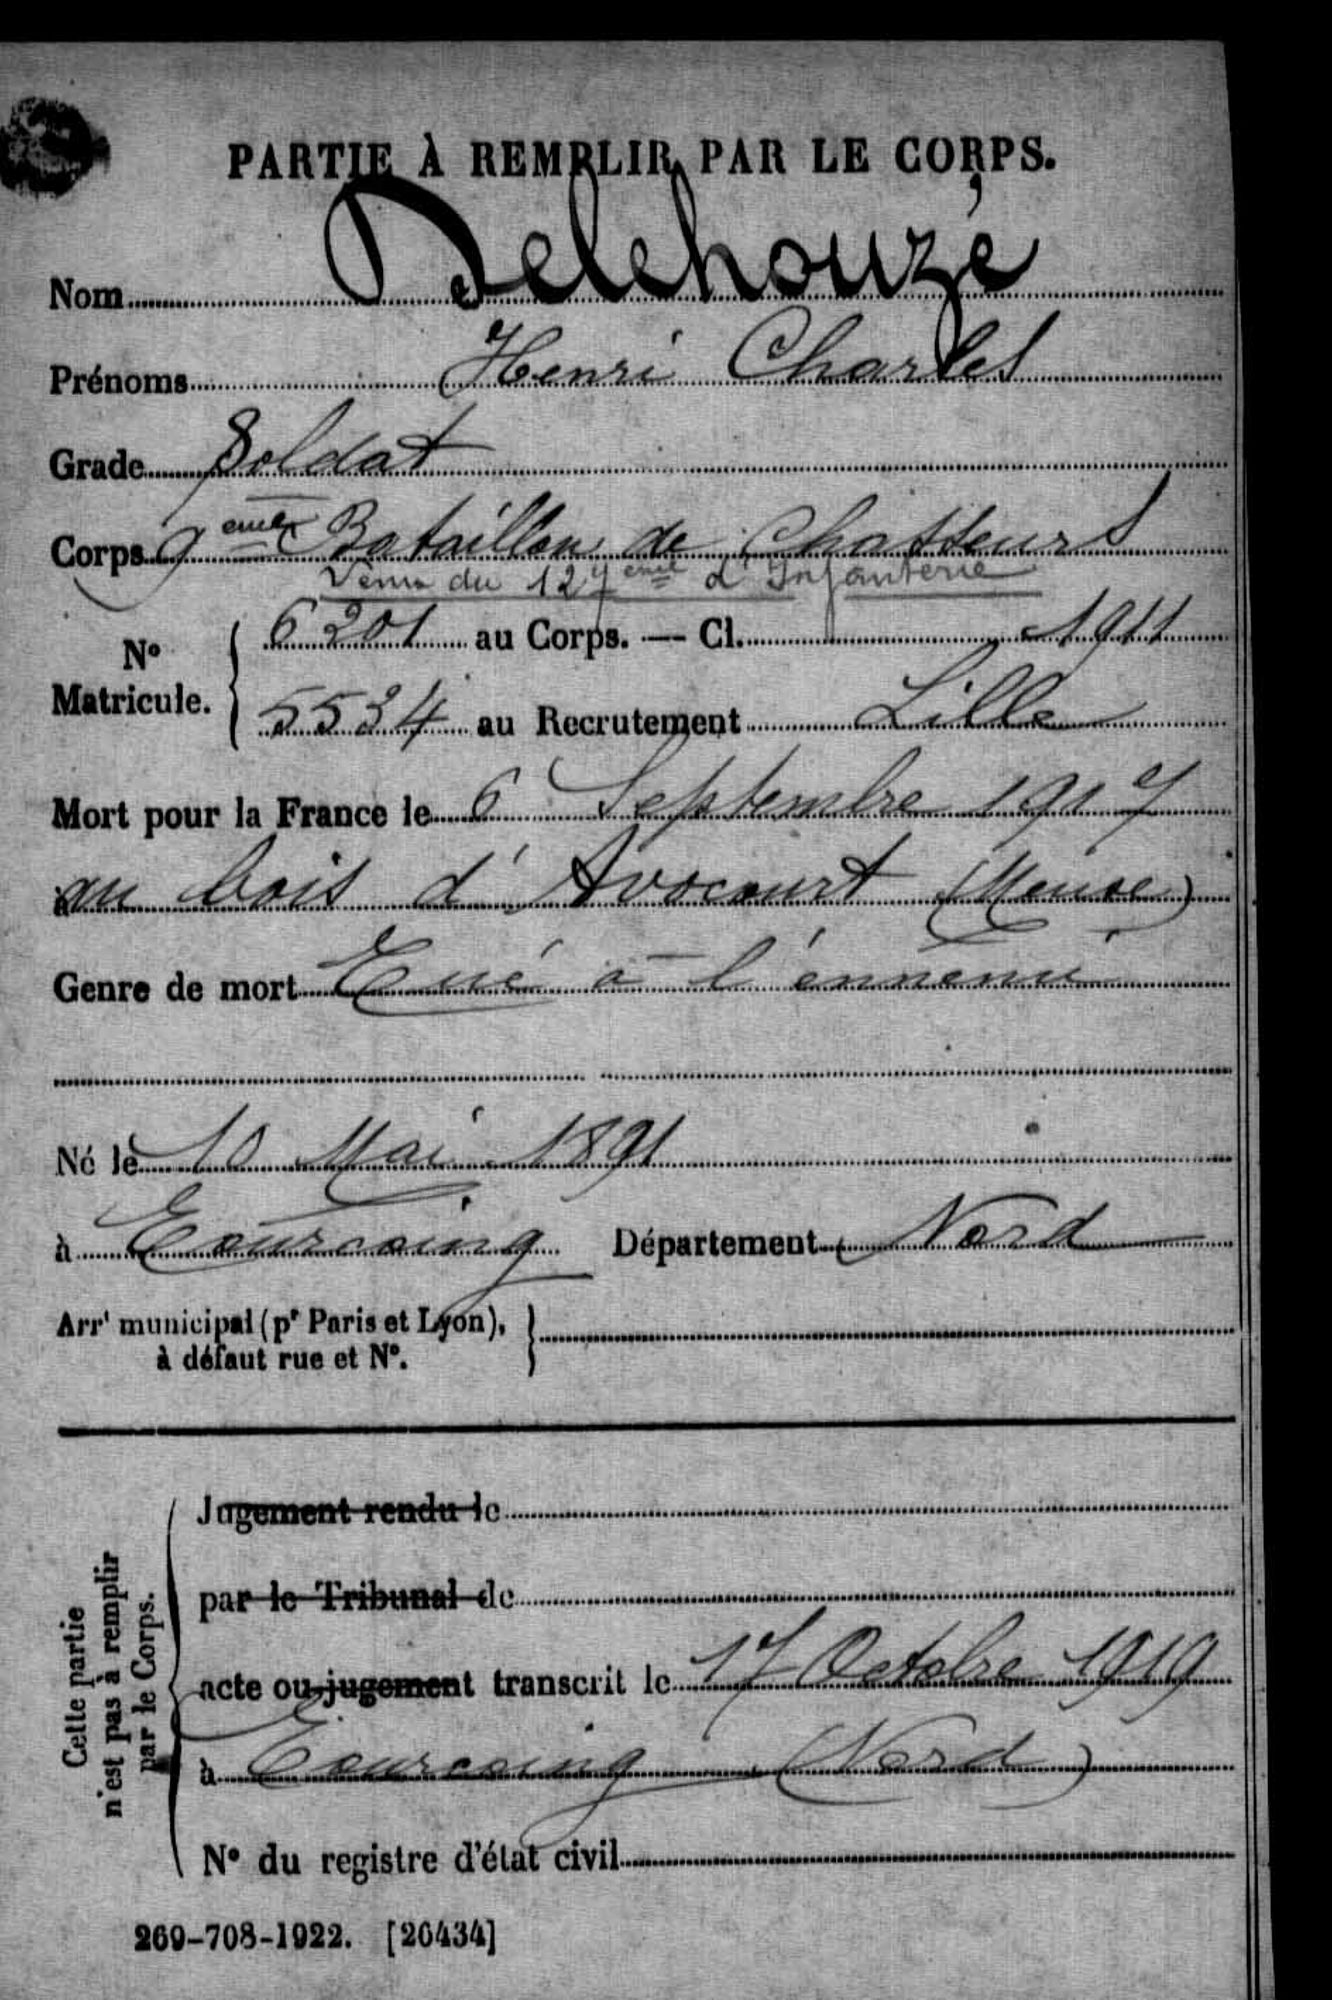 PARTIE À REMPLIR PAR LE CORPS.
Nom Delehouzé
Prénoms Henri Charles
Grade Soldat
Corps 9eme Bataillon de Chasseurs
Venu du 127eme d'Infanterie
N° Matricule. { 6201 au Corps. — Cl. 1911
5534 au Recrutement Lille
Mort pour la France le 6 Septembre 1917
au bois d'Avocourt (Meuse)
Genre de mort Tué à l'ennemi
Né le 10 Mai 1891
à Tourcoing Département Nord
Arrt municipal (pr Paris et Lyon), }
à défaut rue et N°.
Cette partie
n'est pas à remplir
par le Corps.
Jugement rendu le
par le Tribunal de
acte ou jugement transcrit le 17 Octobre 1919
à Tourcoing (Nord)
N° du registre d'état civil
269-708-1922. [26434]